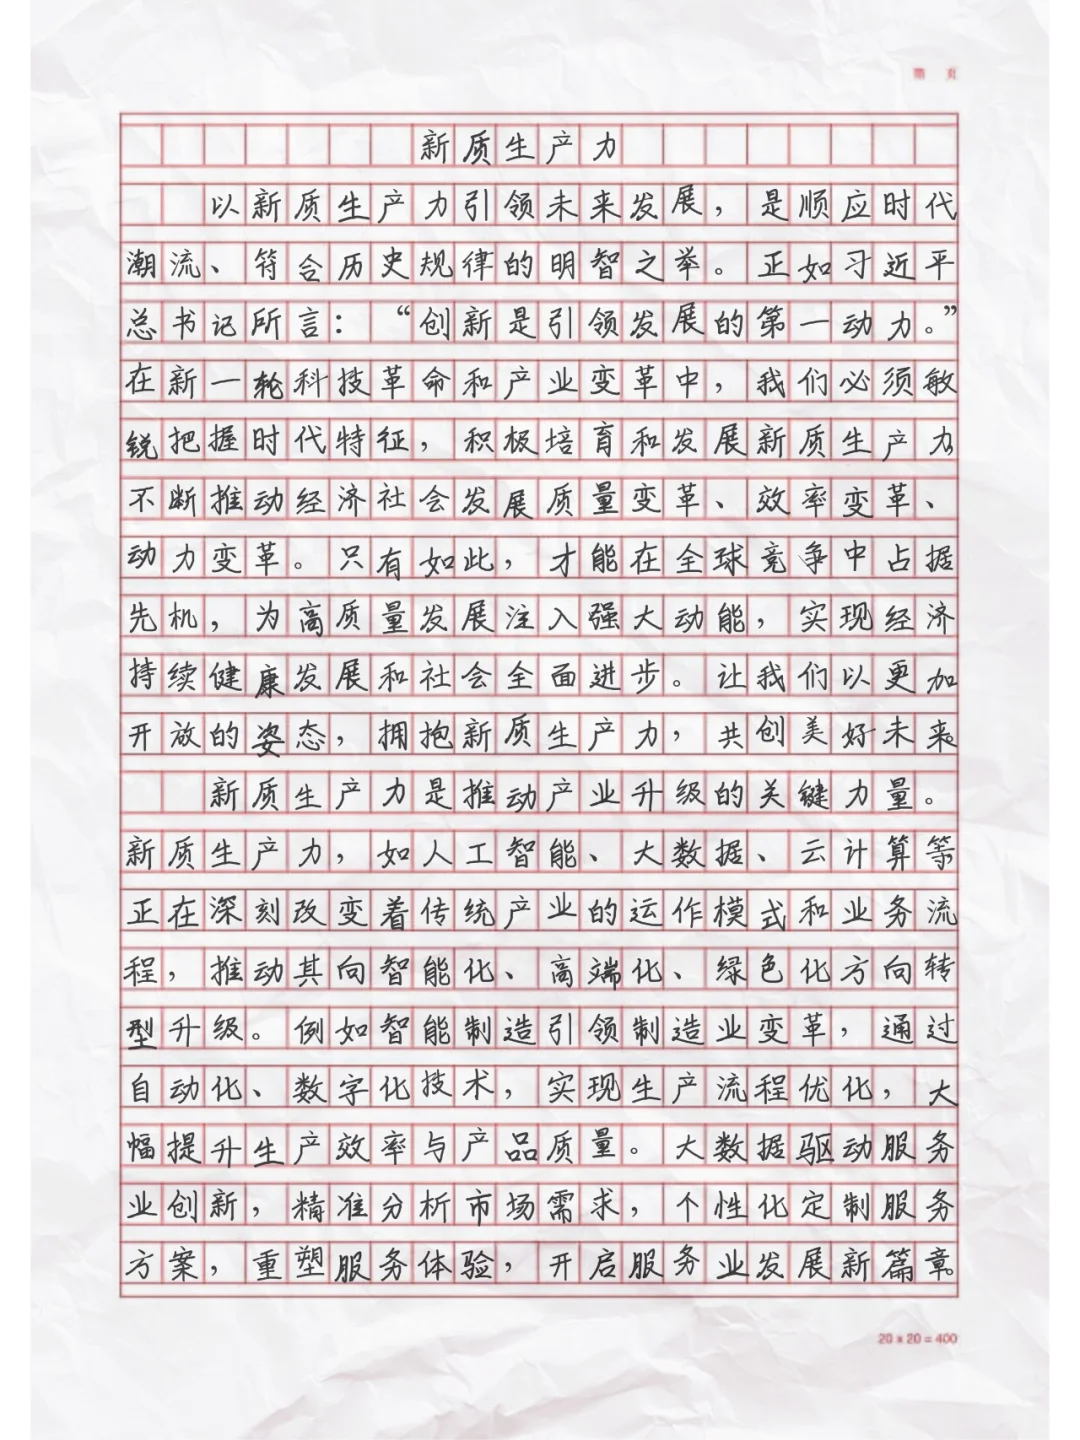 第 页
新质生产力
以新质生产力引领未来发展，是顺应时代
潮流、符合历史规律的明智之举。正如习近平
总书记所言：“创新是引领发展的第一动力。”
在新一轮科技革命和产业变革中，我们必须敏
锐把握时代特征，积极培育和发展新质生产力
不断推动经济社会发展质量变革、效率变革、
动力变革。只有如此，才能在全球竞争中占据
先机，为高质量发展注入强大动能，实现经济
持续健康发展和社会全面进步。让我们以更加
开放的姿态，拥抱新质生产力，共创美好未来
新质生产力是推动产业升级的关键力量。
新质生产力，如人工智能、大数据、云计算等
正在深刻改变着传统产业的运作模式和业务流
程，推动其向智能化、高端化、绿色化方向转
型升级。例如智能制造引领制造业变革，通过
自动化、数字化技术，实现生产流程优化，大
幅提升生产效率与产品质量。大数据驱动服务
业创新，精准分析市场需求，个性化定制服务
方案，重塑服务体验，开启服务业发展新篇章。
20 x 20 = 400